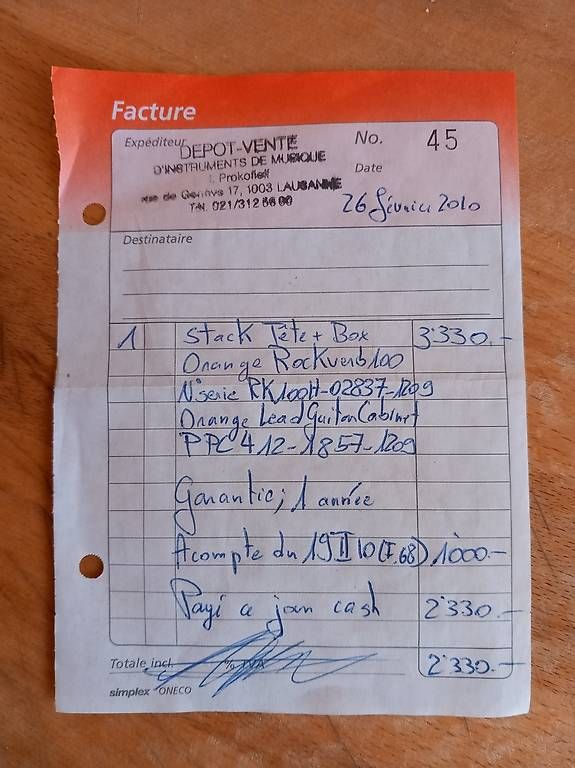 Facture
Expéditeur
DEPOT-VENTE
D'INSTRUMENTS DE MUSIQUE
I. Prokofieff
rue de Genève 17, 1003 LAUSANNE
Tél. 021/312 66 90
No. 45
Date
26 février 2010
Destinataire
1 Stack Tête + Box 3'330.-
Orange Rockverb 100
N°serie RK100H-02837-1209
Orange Lead Guitar Cabinet
PPC412-1857-1209
Garantie; 1 année
Acompte du 19 II 10 (F.68) 1000.-
Payé ce jour cash 2'330.-
Totale incl. % TVA 2'330.-
simplex ONECO